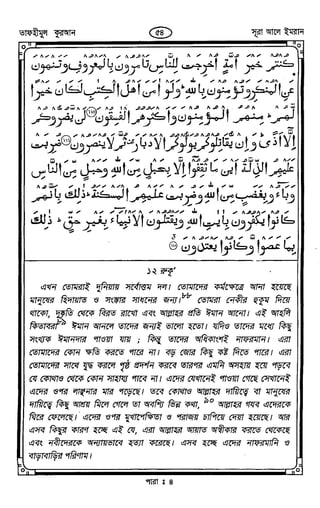 তাফহীমুল কুরআন
৫৪
সূরা আলে ইমরান
كُنْتُمْ خَيْرَ اُمَّةٍ اُخْرِجَتْ لِلنَّاسِ تَاْمُرُوْنَ بِالْمَعْرُوْفِ وَتَنْهَوْنَ
عَنِ الْمُنْكَرِ وَتُؤْمِنُوْنَ بِاللّٰهِ وَلَوْ اٰمَنَ اَهْلُ الْكِتٰبِ لَكَانَ خَيْرًا
لَّهُمْ مِنْهُمُ الْمُؤْمِنُوْنَ وَاَكْثَرُهُمُ الْفٰسِقُوْنَ ﴿١١٠﴾ لَنْ يَّضُرُّوْكُمْ
اِلَّا اَذًى وَاِنْ يُّقَاتِلُوْكُمْ يُوَلُّوْكُمُ الْاَدْبَارَ ثُمَّ لَا يُنْصَرُوْنَ ﴿١١١﴾ ضُرِبَتْ
عَلَيْهِمُ الذِّلَّةُ اَيْنَ مَا ثُقِفُوْا اِلَّا بِحَبْلٍ مِّنَ اللّٰهِ وَحَبْلٍ مِّنَ النَّاسِ
وَبَاءُوْ بِغَضَبٍ مِّنَ اللّٰهِ وَضُرِبَتْ عَلَيْهِمُ الْمَسْكَنَةُ ذٰلِكَ بِاَنَّهُمْ
كَانُوْا يَكْفُرُوْنَ بِاٰيٰتِ اللّٰهِ وَيَقْتُلُوْنَ الْاَنْبِيَاءَ بِغَيْرِ حَقٍّ ذٰلِكَ
بِمَا عَصَوْا وَّكَانُوْا يَعْتَدُوْنَ ﴿١١٢﴾
১২ রুকূ'
এখন তোমরাই দুনিয়ায় সর্বোত্তম দল। তোমাদের কর্মক্ষেত্রে আনা হয়েছে
মানুষের হিদায়াত ও সংস্কার সাধনের জন্য।৮৮ তোমরা নেকীর হুকুম দিয়ে
থাকো, দুষ্কৃতি থেকে বিরত রাখো এবং আল্লাহর প্রতি ঈমান আনো। এই আহলি
কিতাবরা৮৯ ঈমান আনলে তাদের জন্যই ভালো হতো। যদিও তাদের মধ্যে কিছু
সংখ্যক ঈমানদার পাওয়া যায় ; কিন্তু তাদের অধিকাংশই নাফরমান। এরা
তোমাদের কোন ক্ষতি করতে পারে না। বড় জোর কিছু কষ্ট দিতে পারে। এরা
তোমাদের সাথে যুদ্ধ করলে পৃষ্ঠ প্রদর্শন করবে তারপর এমনি অসহায় হয়ে পড়বে
যে কোথাও থেকে কোন সাহায্য পাবে না। এদের যেখানেই পাওয়া গেছে সেখানেই
এদের ওপর লাঞ্ছনার মার পড়েছে। তবে কোথাও আল্লাহর দায়িত্বে বা মানুষের
দায়িত্বে কিছু আশ্রয় মিলে গেলে তা অবশ্যি ভিন্ন কথা,৯০ আল্লাহর গযব এদেরকে
ঘিরে ফেলেছে। এদের ওপর মুখাপেক্ষিতা ও পরাজয় চাপিয়ে দেয়া হয়েছে। আর
এসব কিছুর কারণ হচ্ছে এই যে, এরা আল্লাহর আয়াত অস্বীকার করতে থেকেছে
এবং নবীদেরকে অন্যায়ভাবে হত্যা করেছে। এসব হচ্ছে এদের নাফরমানি ও
বাড়াবাড়ির পরিণাম।
পারা : ৪